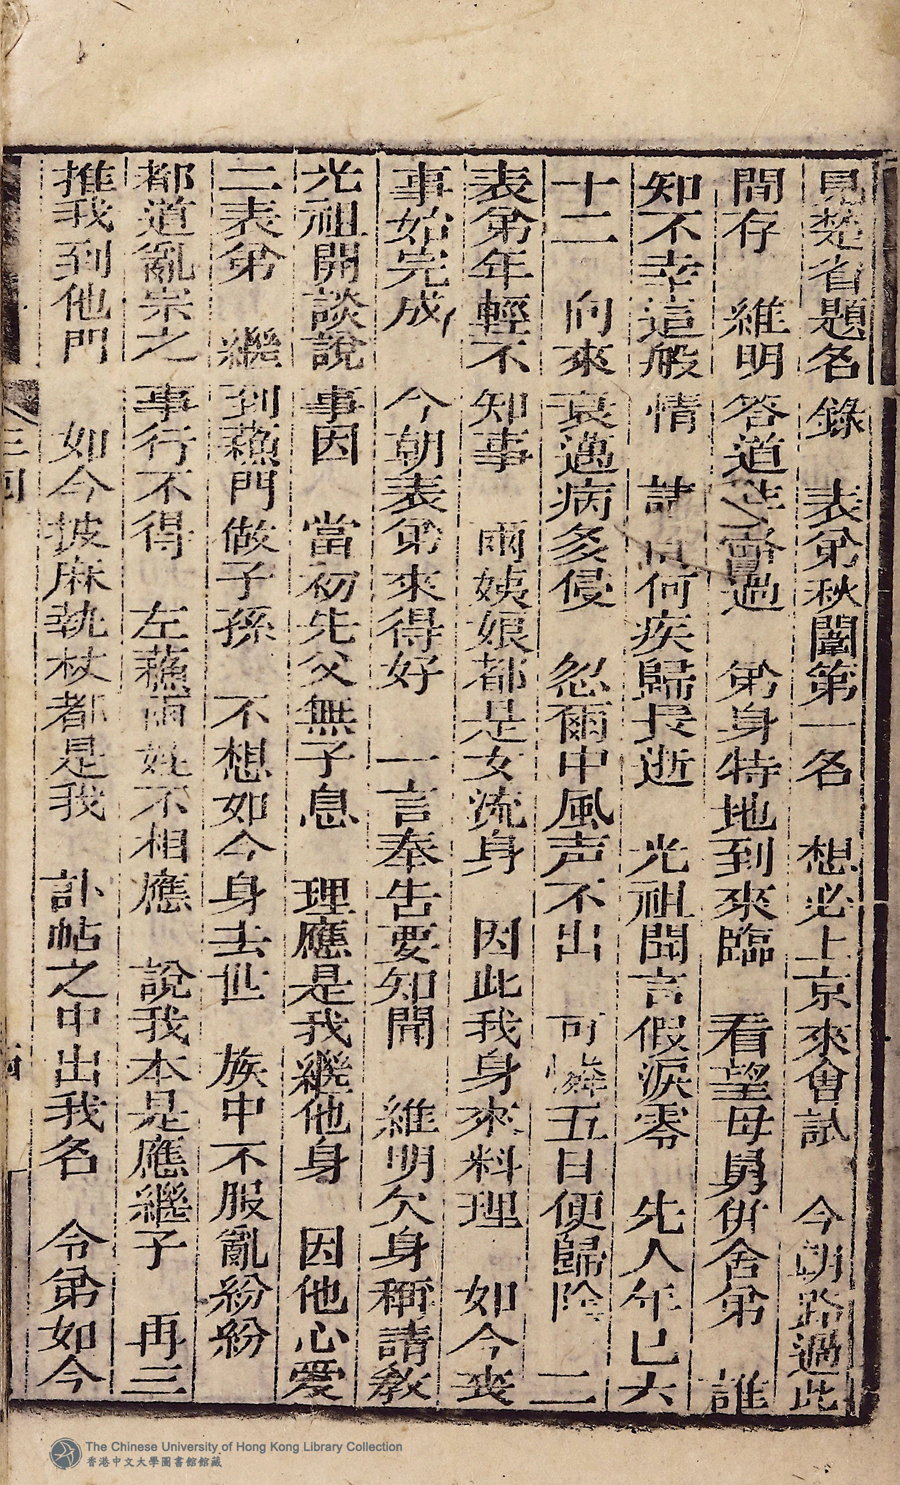 見楚省題名錄　表弟秋闈第一名　想必上京來會試　今朝路過此
間存　維明答道　過　弟身特地到來臨　看望母舅併舍弟　誰
知不幸這般情　何疾歸長逝　光祖聞言假淚零　先人年已六
十二　向來衰邁病多侵　忽爾中風声不出　可憐五日便歸陰　二
表弟年輕不知事　兩姨娘都是女流身　因此我身來料理　如今喪
事始完成　今朝表弟來得好　一言奉告要知聞　維明欠身稱請教
光祖開談說事因　當初先父無子息　理應是我繼他身　因他心愛
二表弟　繼到蘓門做子孫　不想如今身去世　族中不服亂紛紛
都道亂宗之事行不得　左蘓兩姓不相應　說我本是應繼子　再三
推我到他門　如今披麻執杖都是我　訃帖之中出我名　令弟如今
三回
The Chinese University of Hong Kong Library Collection
香港中文大學圖書館館藏